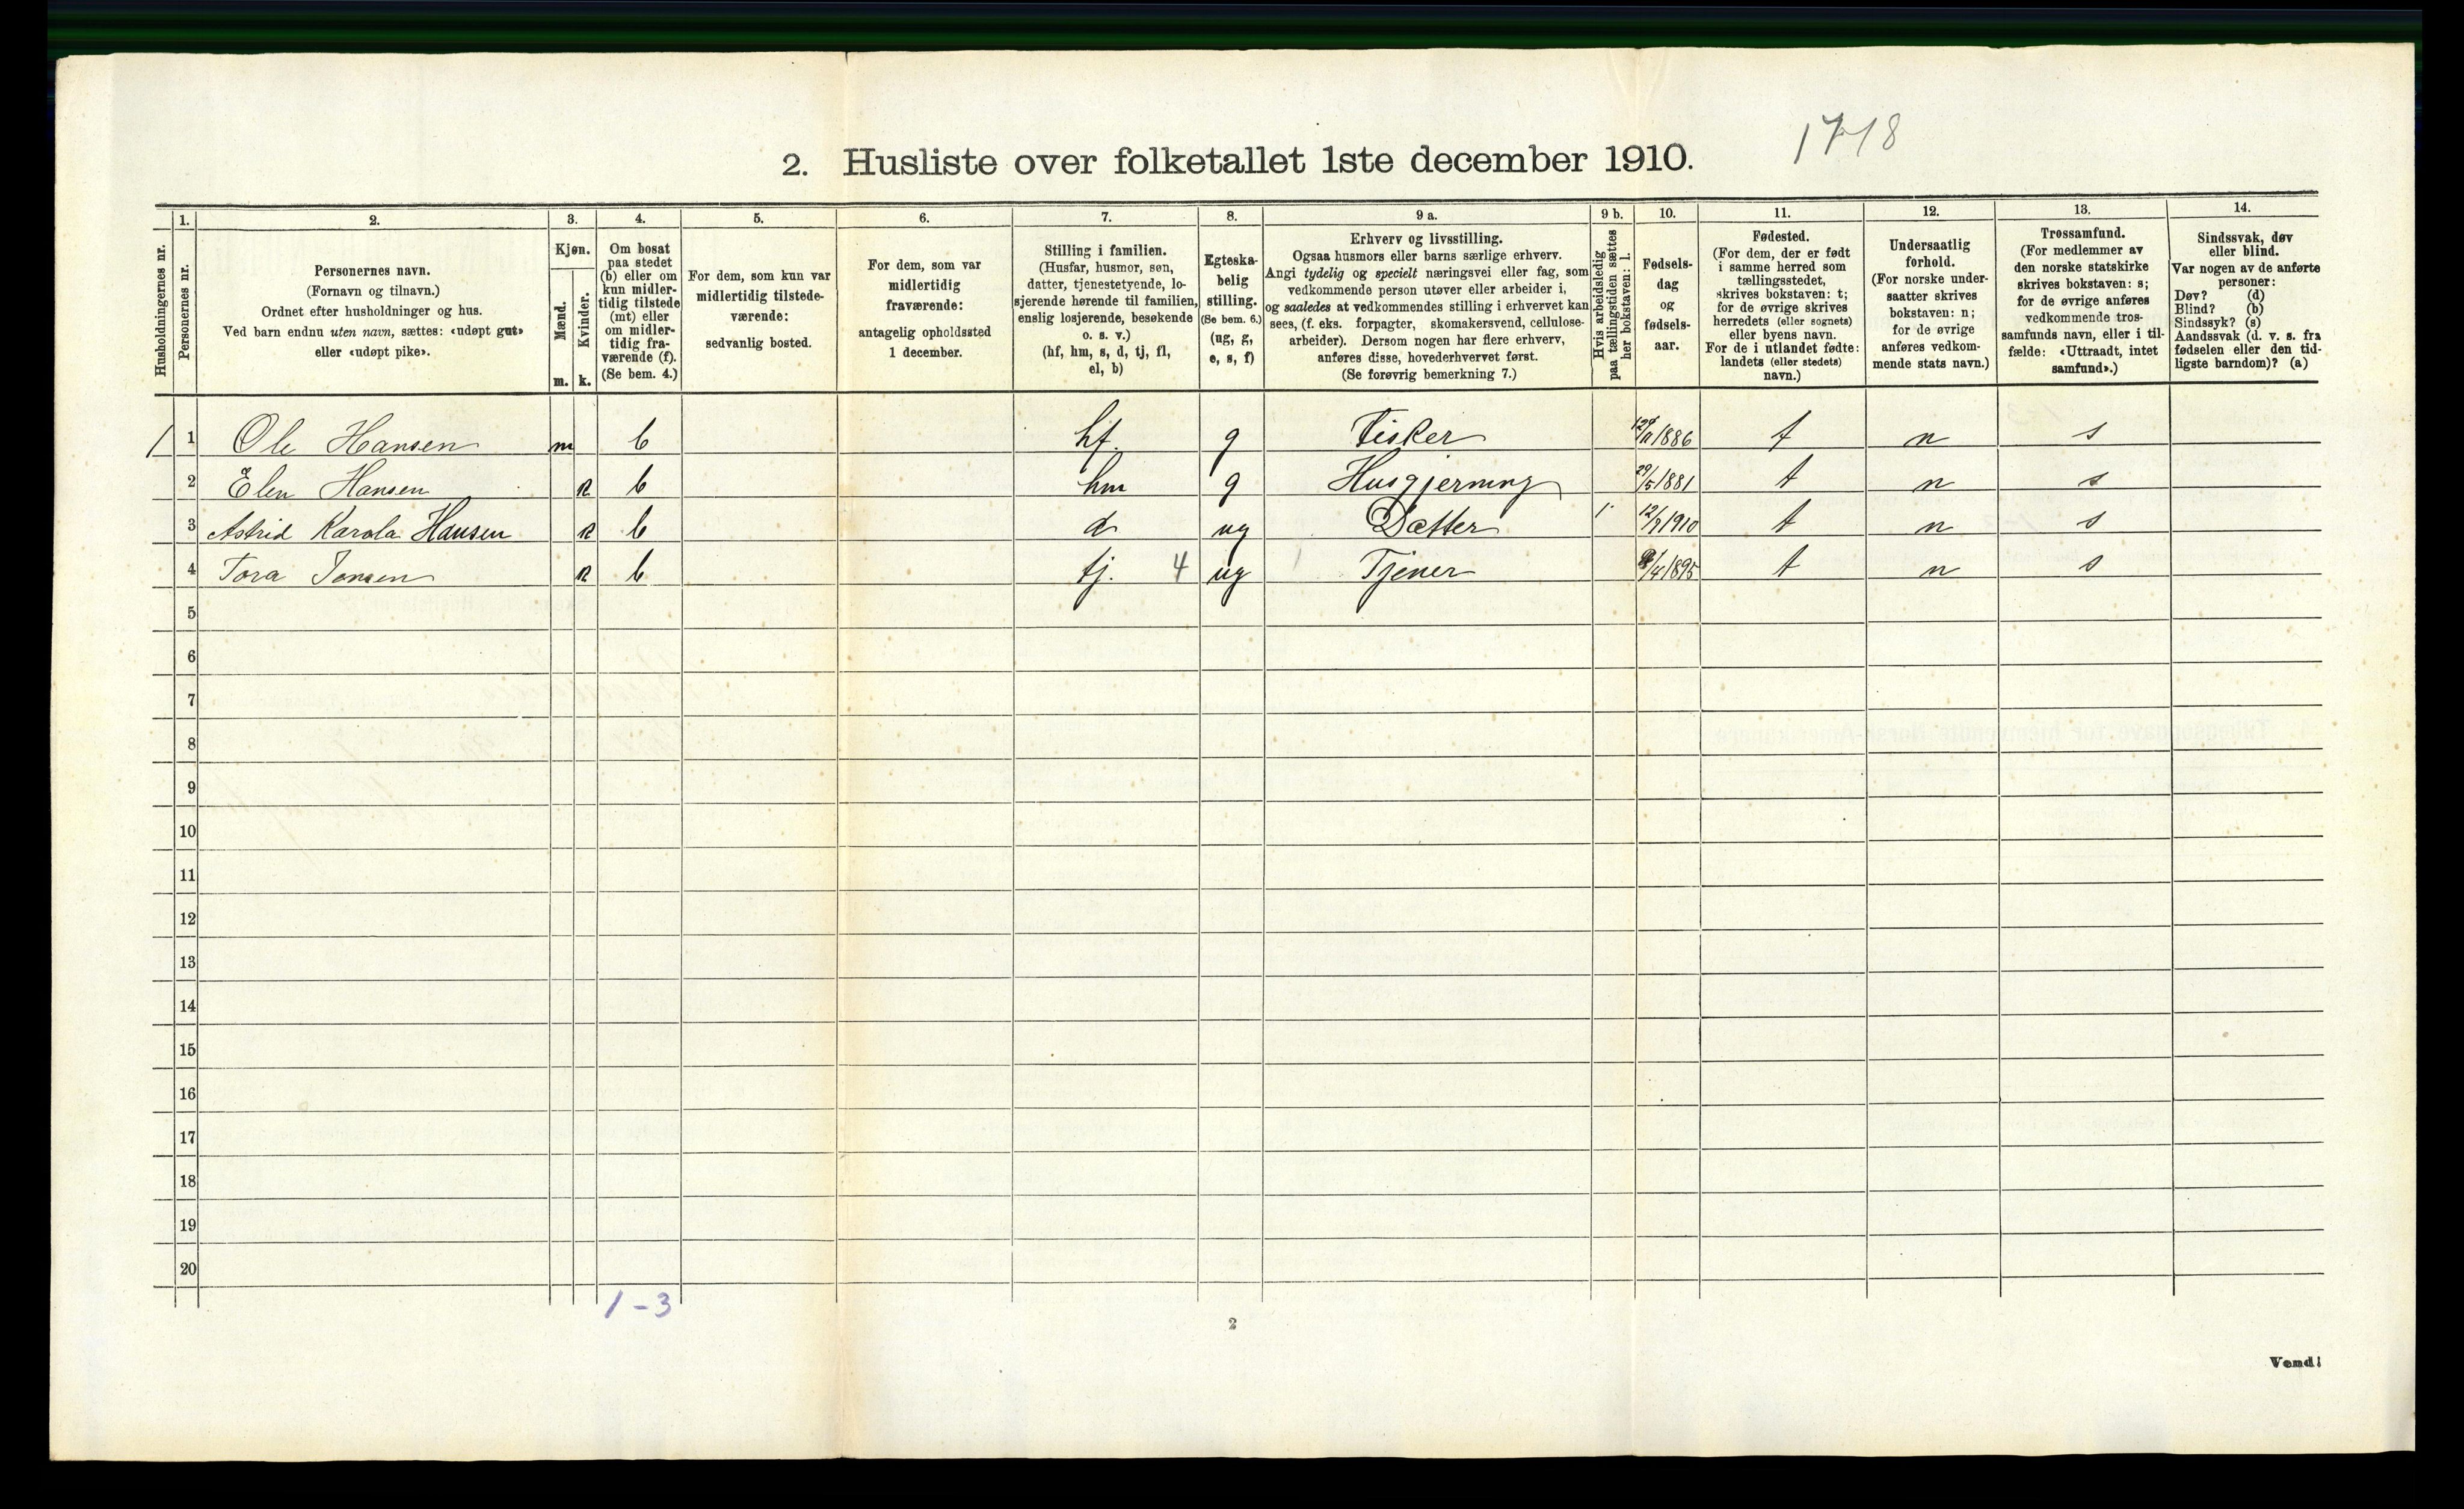 1718
2. Husliste over folketallet 1ste december 1910.
Husholdningernes nr.
1.
Personernes nr.
2.
Personernes navn.
(Fornavn og tilnavn.)
Ordnet efter husholdninger og hus.
Ved barn endnu uten navn, sættes: «udøpt gut»
eller «udøpt pike».
3.
Kjøn.
Mænd.
m.
Kvinder.
k.
4.
Om bosat
paa stedet
(b) eller om
kun midler-
tidig tilstede
(mt) eller
om midler-
tidig fra-
værende (f).
(Se bem. 4.)
5.
For dem, som kun var
midlertidig tilstede-
værende:
sedvanlig bosted.
6.
For dem, som var
midlertidig
fraværende:
antagelig opholdssted
1 december.
7.
Stilling i familien.
(Husfar, husmor, søn,
datter, tjenestetyende, lo-
sjerende hørende til familien,
enslig losjerende, besøkende
o. s. v.)
(hf, hm, s, d, tj, fl,
el, b)
8.
Egteska-
belig
stilling.
(Se bem. 6.)
(ug, g,
e, s, f)
9 a.
Erhverv og livsstilling.
Ogsaa husmors eller barns særlige erhverv.
Angi tydelig og specielt næringsvei eller fag, som
vedkommende person utøver eller arbeider i,
og saaledes at vedkommendes stilling i erhvervet kan
sees, (f. eks. forpagter, skomakersvend, cellulose-
arbeider). Dersom nogen har flere erhverv,
anføres disse, hovederhvervet først.
(Se forøvrig bemerkning 7.)
9 b.
Hvis arbeidsledig
paa tællingstiden sættes
her bokstaven: l.
10.
Fødsels-
dag
og
fødsels-
aar.
11.
Fødested.
(For dem, der er født
i samme herred som
tællingsstedet,
skrives bokstaven: t;
for de øvrige skrives
herredets (eller sognets)
eller byens navn.
For de i utlandet fødte:
landets (eller stedets)
navn.)
12.
Undersaatlig
forhold.
(For norske under-
saatter skrives
bokstaven: n;
for de øvrige
anføres vedkom-
mende stats navn.)
13.
Trossamfund.
(For medlemmer av
den norske statskirke
skrives bokstaven: s;
for de øvrige anføres
vedkommende tros-
samfunds navn, eller i til-
fælde: «Uttraadt, intet
samfund».)
14.
Sindssvak, døv
eller blind.
Var nogen av de anførte
personer:
Døv? (d)
Blind? (b)
Sindssyk? (s)
Aandssvak (d. v. s. fra
fødselen eller den tid-
ligste barndom)? (a)
1 1 Ole Hansen m b hf. g Fisker 1886 t n s
2 Elen Hansen k b hm g Husgjerning 29/5 1881 t n s
3 Astrid Karola Hansen k b d ug Datter 12/7 1910 t n s
4 Tora Jensen k b tj. 4 ug Tjener /4 1895 t n s
5
6
7
8
9
10
11
12
13
14
15
16
17
18
19
20
1-3
2
Vend!